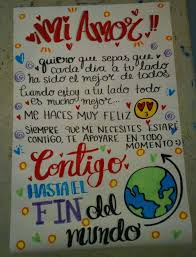 Mi AMOR!!
quiero que sepas que
cada dia a tu lado
ha sido el mejor de todos
Cuando estoy a tu lado todo
es mucho mejor...
ME HACES MUY FELIZ
SIEMPRE QUE ME NECESITES ESTARÉ
CONTIGO, TE APOYARE EN TODO
MOMENTO
Contigo
HASTA EL
FIN del
mundo